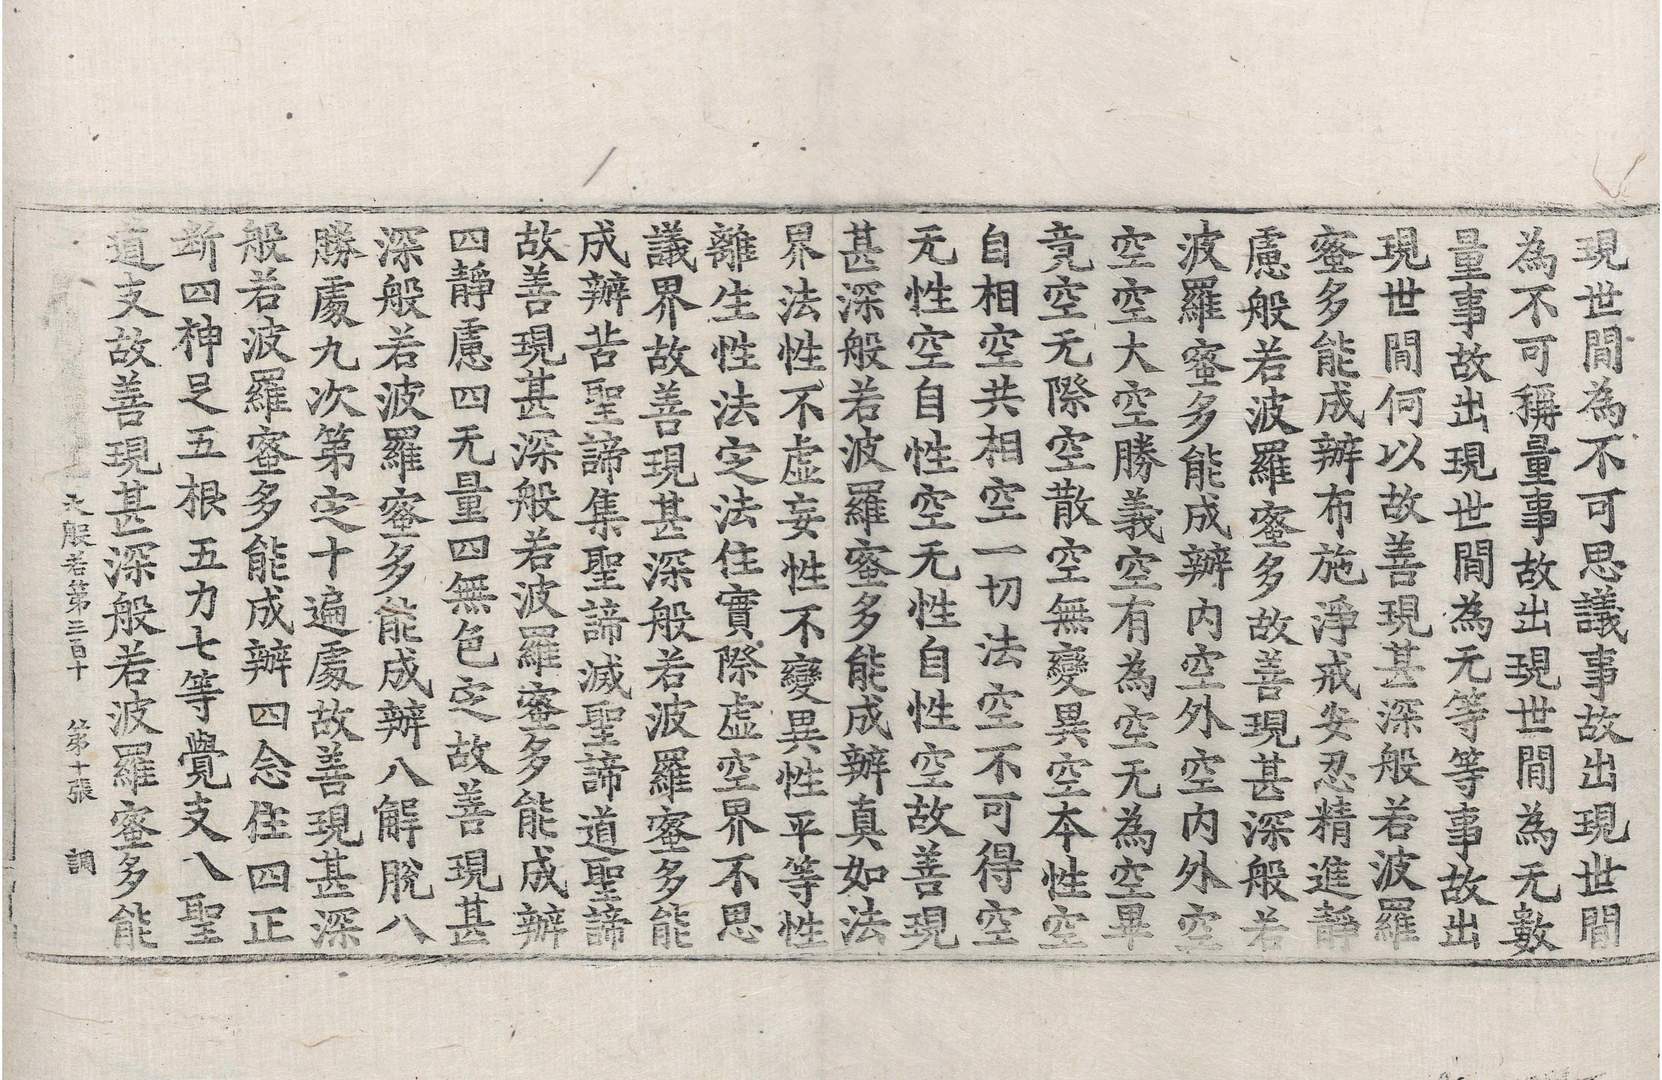 現世間為不可思議事故出現世間
為不可稱量事故出現世間為无數
量事故出現世間為无等等事故出
現世間何以故善現甚深般若波羅
蜜多能成辦布施淨戒安忍精進靜
慮般若波羅蜜多故善現甚深般若
波羅蜜多能成辦內空外空內外空
空空大空勝義空有為空无為空畢
竟空无際空散空無變異空本性空
自相空共相空一切法空不可得空
无性空自性空无性自性空故善現
甚深般若波羅蜜多能成辦真如法
界法性不虛妄性不變異性平等性
離生性法定法住實際虛空界不思
議界故善現甚深般若波羅蜜多能
成辦苦聖諦集聖諦滅聖諦道聖諦
故善現甚深般若波羅蜜多能成辦
四靜慮四无量四無色定故善現甚
深般若波羅蜜多能成辦八解脫八
勝處九次第定十遍處故善現甚深
般若波羅蜜多能成辦四念住四正
斷四神足五根五力七等覺支八聖
道支故善現甚深般若波羅蜜多能
大般若第三百十 第十張 調